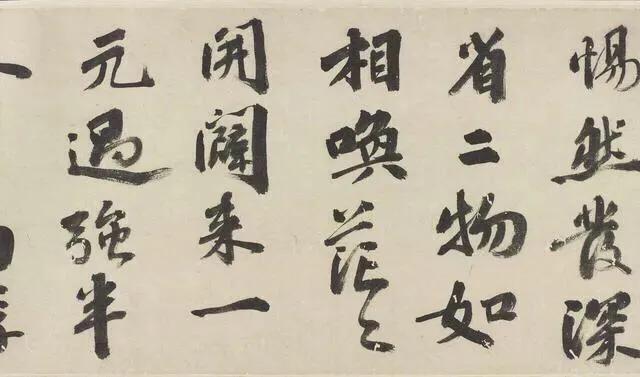 惕然發深
省二物如
相喚茫々
開闢来一
元過強半